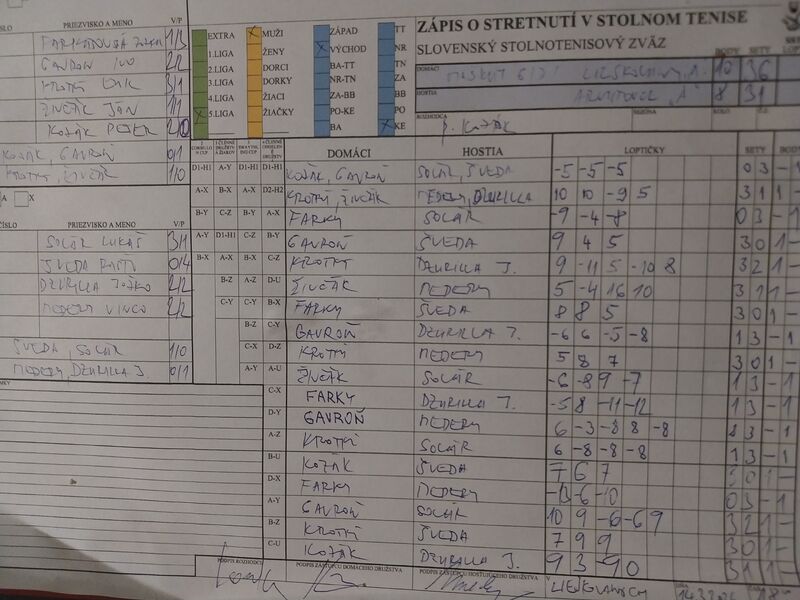 ZÁPIS O STRETNUTÍ V STOLNOM TENISE
SLOVENSKÝ STOLNOTENISOVÝ ZVÄZ
DOMÁCI 10 36
HOSTIA 8 31
BODY SETY
ROZHODCA P. KOZÁK
EXTRA X MUŽI ZÁPAD TT
1.LIGA ŽENY X VÝCHOD NR
2.LIGA DORCI BA-TT TN
3.LIGA DORKY NR-TN ZA
4.LIGA ŽIACI ZA-BB BB
X 5.LIGA ŽIAČKY PO-KE PO
BA X KE
PRIEZVISKO A MENO V/P
1/3
GAVROŇ IVO 2/2
KROTKÝ 3/1
ŽIVČÁK JÁN 1/1
KOZÁK PETER 2/0
KOZÁK, GAVROŇ 0/1
KROTKÝ, ŽIVČÁK 1/0
PRIEZVISKO A MENO V/P
SOLÁR LUKÁŠ 3/1
ŠVEDA 0/4
DZURILLA JOŽKO 2/2
MEDERY VINCO 2/2
ŠVEDA, SOLÁR 1/0
MEDERY, DZURILLA J. 0/1
DOMÁCI HOSTIA LOPTIČKY SETY BODY
D1-H1 A-Y D1-H1 D1-H1 KOZÁK, GAVROŇ SOLÁR, ŠVEDA -5 -5 -5 0 3 - 1
A-X B-X A-X D2-H2 KROTKÝ, ŽIVČÁK MEDERY, DZURILLA 10 10 -9 5 3 1 1 -
B-Y C-Z B-Y A-X FARKY SOLÁR -9 -4 -8 0 3 - 1
A-Y D1-H1 C-Z B-Y GAVROŇ ŠVEDA 9 4 5 3 0 1 -
B-X A-X B-X C-Z KROTKÝ DZURILLA J. 9 -11 5 -10 8 3 2 1 -
B-Z A-Z D-U ŽIVČÁK MEDERY 5 -4 16 10 3 1 1 -
C-Y C-Y B-X FARKY ŠVEDA 8 8 5 3 0 1 -
B-Z C-Y GAVROŇ DZURILLA J. -6 6 -5 -8 1 3 - 1
C-X D-Z KROTKÝ MEDERY 5 8 7 3 0 1 -
A-Y A-U ŽIVČÁK SOLÁR -6 -8 9 -7 1 3 - 1
C-X FARKY DZURILLA J. -5 8 -11 -12 1 3 - 1
D-Y GAVROŇ MEDERY 6 -3 -8 8 -8 3 - 1
A-Z KROTKÝ SOLÁR 6 -8 -8 -8 1 3 - 1
B-U KOZÁK ŠVEDA 7 6 7 3 0 1 -
D-X FARKY MEDERY -13 -6 -10 0 3 - 1
A-Y GAVROŇ SOLÁR 10 9 -6 -6 9 3 2 1 -
B-Z KROTKÝ ŠVEDA 7 9 9 3 0 1 -
C-U KOZÁK DZURILLA J. 9 3 -9 0 3 1 1 -
PODPIS ROZHODCU PODPIS ZÁSTUPCU DOMÁCEHO DRUŽSTVA PODPIS ZÁSTUPCU HOSŤUJÚCEHO DRUŽSTVA V